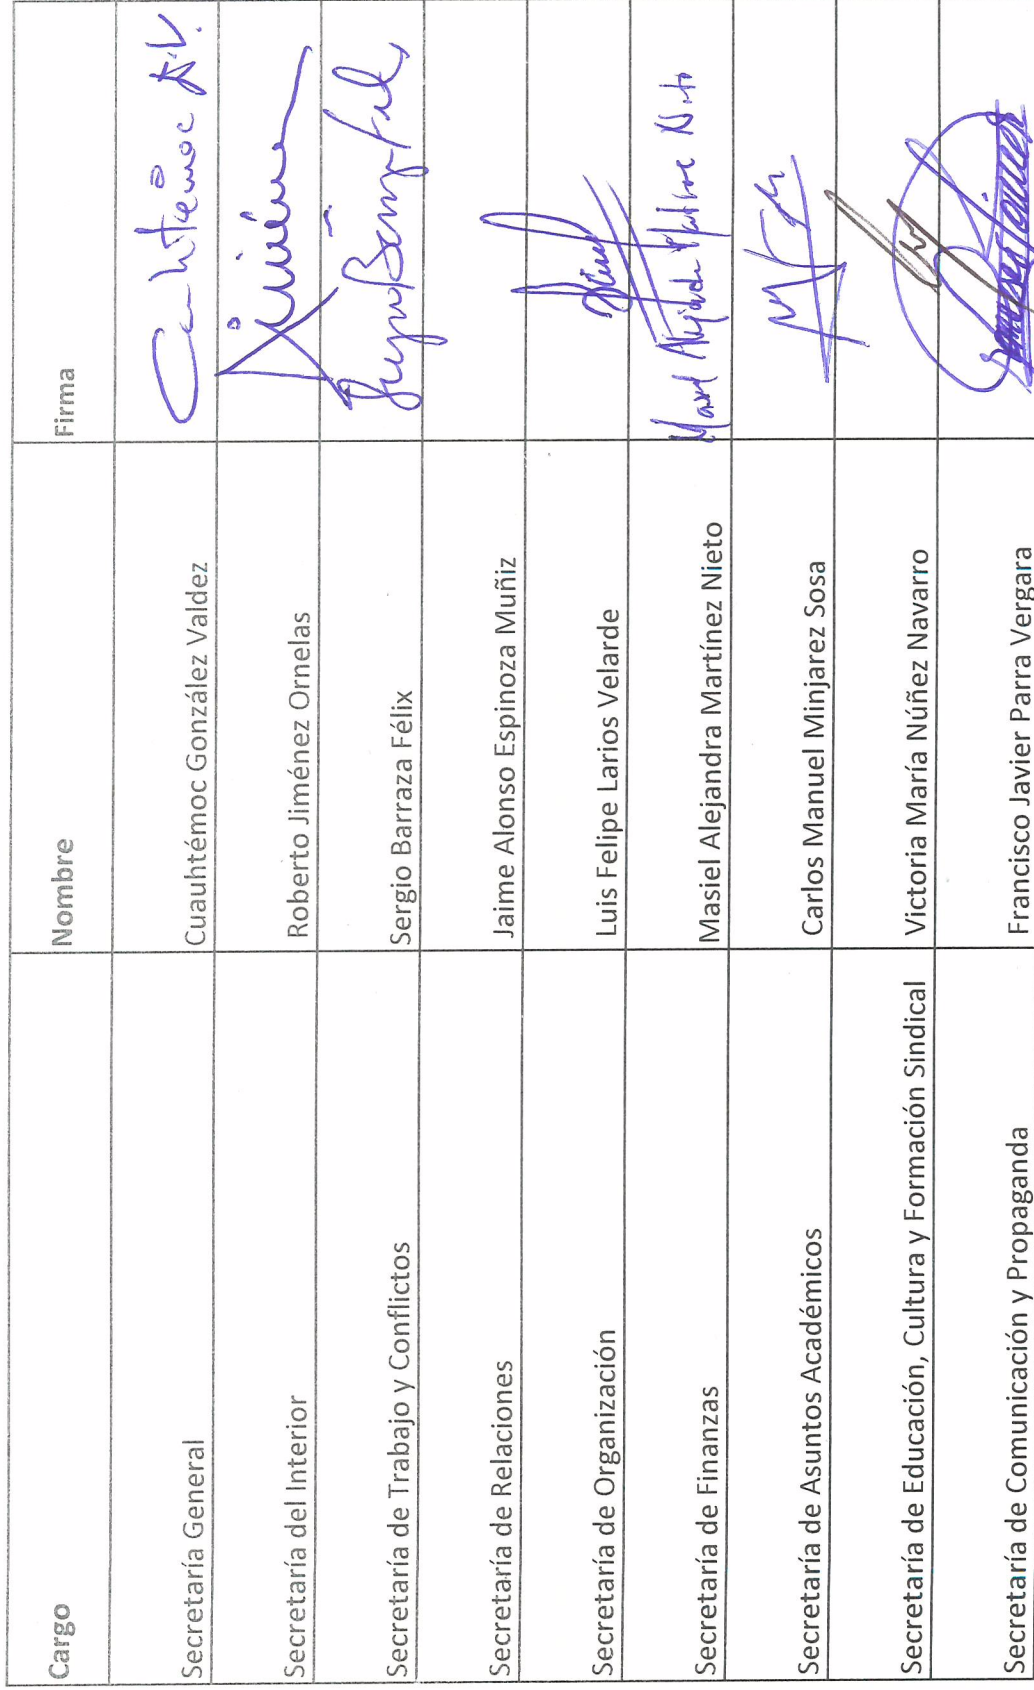 Cargo Nombre Firma
Secretaría General Cuauhtémoc González Valdez Cuauhtémoc G.V.
Secretaría del Interior Roberto Jiménez Ornelas Jiménez
Secretaría de Trabajo y Conflictos Sergio Barraza Félix Sergio Barraza Félix
Secretaría de Relaciones Jaime Alonso Espinoza Muñiz
Secretaría de Organización Luis Felipe Larios Velarde
Secretaría de Finanzas Masiel Alejandra Martínez Nieto Masiel Alejandra Martínez Nieto
Secretaría de Asuntos Académicos Carlos Manuel Minjarez Sosa
Secretaría de Educación, Cultura y Formación Sindical Victoria María Núñez Navarro
Secretaría de Comunicación y Propaganda Francisco Javier Parra Vergara